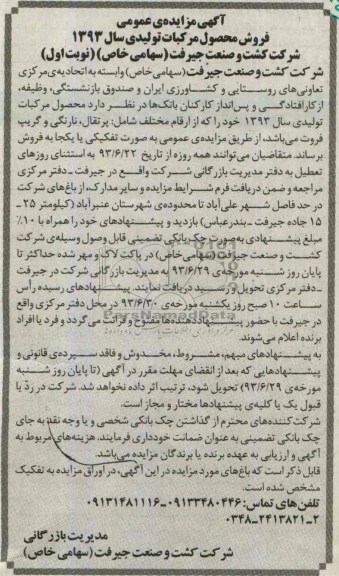 آگهی مزایده‌ی عمومی
فروش محصول مرکبات تولیدی سال ۱۳۹۳
شرکت کشت و صنعت جیرفت (سهامی خاص) (نوبت اول)
شرکت کشت و صنعت جیرفت (سهامی خاص) وابسته به اتحادیه‌ی مرکزی
تعاونی‌های روستایی و کشاورزی ایران و صندوق بازنشستگی، وظیفه،
از کارافتادگی و پس‌انداز کارکنان بانک‌ها در نظر دارد محصول مرکبات
تولیدی سال ۱۳۹۳ خود را که از ارقام مختلف شامل: پرتقال، نارنگی و گریپ
فروت می‌باشد، از طریق مزایده‌ی عمومی به صورت تفکیکی یا یکجا به فروش
برساند. متقاضیان می‌توانند همه روزه از تاریخ ۹۳/۶/۲۲ به استثنای روزهای
تعطیل به دفتر مدیریت بازرگانی شرکت واقع در جیرفت ـ دفتر مرکزی
مراجعه و ضمن دریافت فرم شرایط مزایده و سایر مدارک، از باغ‌های شرکت
در حد فاصل شهر علی‌آباد تا محدوده‌ی شهرستان عنبرآباد (کیلومتر ۲۵ ـ
۱۵ جاده جیرفت ـ بندرعباس) بازدید و پیشنهادهای خود را همراه با ۱۰٪
مبلغ پیشنهادی به صورت چک بانکی تضمینی قابل وصول وسیله‌ی شرکت
کشت و صنعت جیرفت (سهامی خاص) در پاکت لاک و مهر شده حداکثر تا
پایان روز شنبه مورخه‌ی ۹۳/۶/۲۹ به مدیریت بازرگانی شرکت در جیرفت
ـ دفتر مرکزی تحویل و رسید دریافت نمایند. پیشنهادهای رسیده رأس
ساعت ۱۰ صبح روز یکشنبه مورخه‌ی ۹۳/۶/۳۰ در محل دفتر مرکزی واقع
در جیرفت با حضور پیشنهاددهنده‌ها مفتوح و قرائت می‌گردد و فرد یا افراد
برنده اعلام می‌شوند.
به پیشنهادهای مبهم، مشروط، مخدوش و فاقد سپرده‌ی قانونی و
پیشنهادهایی که بعد از انقضای مهلت مقرر در آگهی (تا پایان روز شنبه
مورخه‌ی ۹۳/۶/۲۹) تحویل شود، ترتیب اثر داده نخواهد شد. شرکت در ردّ یا
قبول یک یا کلیه‌ی پیشنهادها مختار و مجاز است.
شرکت‌کننده‌های محترم از گذاشتن چک بانکی شخصی و یا وجه نقد به جای
چک بانکی تضمینی به عنوان ضمانت خودداری فرمایند. هزینه‌های مربوط به
آگهی و ارزیابی به عهده برنده یا برندگان مزایده می‌باشد.
قابل ذکر است که باغ‌های مورد مزایده در این آگهی، در اوراق مزایده به تفکیک
مشخص شده است.
تلفن‌های تماس: ۰۹۱۳۳۴۸۰۴۴۶-۰۹۱۳۱۴۸۱۱۱۶
۰۳۴۸-۲۴۱۳۸۲۱-۲
مدیریت بازرگانی
شرکت کشت و صنعت جیرفت (سهامی خاص)
ParsNamadData